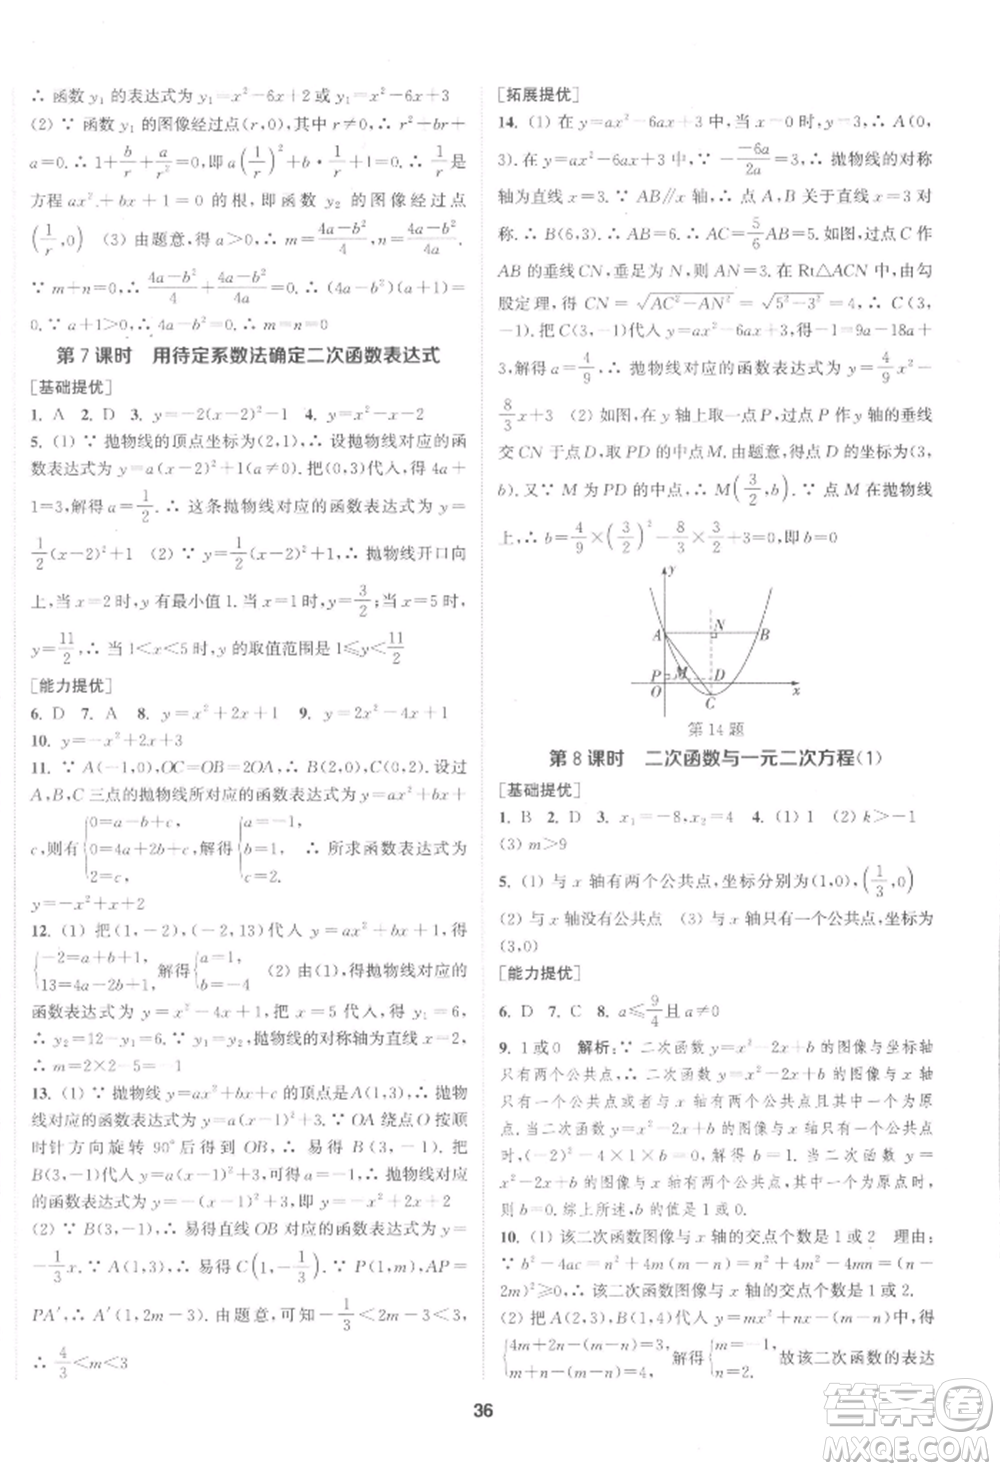 ∴ 函数 y₁ 的表达式为 y₁=x²-6x+2或 y₁=x²-6x+8
(2) ∵ 函数 y₁ 的图像经过点(r,0),其中 r≠0,∴ r²-br+
a=0.∴ 1+b/r+a/r²=0,即 a(1/r)²+b·1/r+1=0.∴ 1/r 是
方程 ax²+bx+1=0 的根,即函数 y₂ 的图像经过点
(1/r,0) (3) 由题意,得 a>0,∴ m=(4a-b²)/4,n=(4a-b²)/4a.
∵ m+n=0,∴ (4a-b²)/4+(4a-b²)/4a=0,∴ (4a-b²)(a+1)=
0.∵ a>0,∴ a+1>0.∴ 4a-b²=0.∴ m=n=0
第 7 课时 用待定系数法确定二次函数表达式
[基础提优]
1. A 2. D 3. y=-2(x-2)²-1 4. y=x²-x-2
5. (1) ∵ 抛物线的顶点坐标为(2,1),∴ 设抛物线对应的函
数表达式为 y=a(x-2)²+1(a≠0).把(0,3)代入,得 4a+
1=3,解得 a=1/2.∴ 这条抛物线对应的函数表达式为 y=
1/2(x-2)²+1 (2) ∵ a=1/2>0,∴ 抛物线开口向
上,当 x=2 时,y 有最小值 1.当 x=1 时,y=3/2;当 x=5 时,
y=11/2,∴ 当 1<x<5 时,y 的取值范围是 1≤y<11/2
[能力提优]
6. D 7. A 8. y=x²+2x+1 9. y=x²-4x+1
10. y=-x²+2x+3
11. ∵ A(-1,0),OC=OB=2OA,∴ B(2,0),C(0,2).设过
点 A,B,C 三点的抛物线对应的函数表达式为 y=ax²+bx+
c,则有 {0=a-b+c, 0=4a+2b+c, 2=c, 解得 {a=-1, b=1, c=2. ∴ 所求函数表达式为
y=-x²+x+2
12. (1) 把(1,-2),(-2,13)代入 y=ax²+bx+1,得
{-2=a+b+1, 13=4a-2b+1, 解得 {a=1, b=-4 (2) 由(1),得抛物线对应的
函数表达式为 y=x²-4x+1.把 x=5 代入,得 y₁=6.
∴ y₂=12-y₁=6.∵ y₁=y₂,抛物线的对称轴为直线 x=2,
∴ m=2×2-5=-1
13. (1) ∵ 抛物线 y=ax²+bx+c 的顶点是 A(1,3),∴ 抛物
线对应的函数表达式为 y=a(x-1)²+3.∵ OA 绕点 O 按顺
时针方向旋转 90°后得到 OB,∴ 易得 B(3,-1).把
B(3,-1)代入 y=a(x-1)²+3,可得 a=-1,∴ 抛物线对应
的函数表达式为 y=-(x-1)²+3,即 y=-x²+2x+2
(2) ∵ B(3,-1),∴ 易得直线 OB 对应的函数表达式为 y=
-1/3x.∵ A(1,3),∴ 易得 C(1,-1/3).∵ P(1,m),AP=
PA′,∴ A′(1,2m-3).由题意,可知-1/3<2m-3<3,
∴ 4/3<m<3
[拓展提优]
14. (1) 在 y=ax²-6ax+3 中,当 x=0 时,y=3,∴ A(0,
3).把 y=ax²-6ax+3,∵ -(-6a)/2a=3,∴ 抛物线的对称
轴为直线 x=3.∵ AB∥x 轴,∴ 点 A,B 关于直线 x=3 对
称.∴ B(6,3).∴ AB=6.∴ AC=5/6AB=5.如图,过点 C 作
AB 的垂线 CN,垂足为 N,则 AN=3.在 Rt△ACN 中,由勾
股定理,得 CN=√(AC²-AN²)=√(5²-3²)=4,∴ 可得 C(3,
-1).把 C(3,-1)代入 y=ax²-6ax+3,得 9a-18a+3=-1,
∴ a=4/9,∴ 该抛物线对应的函数表达式为 y=4/9x²-
8/3x+3 (2) 如图,在 y 轴上取一点 P,过点 P 作 y 轴的垂线
交 CN 于点 D,取 PD 的中点 M.∵ C(3,-1),∴ D(3,
b).又∵ M 为 PD 的中点,∴ M(3/2,b).∵ 点 M 在抛物线
上,∴ b=4/9×(3/2)²-8/3×3/2+3=0,即 b=0
y
A N B
P M D
O C x
第14题
第 8 课时 二次函数与一元二次方程(1)
[基础提优]
1. B 2. D 3. x₁=-8,x₂=4 4. (1) 1 (2) k>-1
(3) m>9
5. (1) 与 x 轴有两个公共点,坐标分别为(1,0),(1/3,0)
(2) 与 x 轴没有公共点 (3) 与 x 轴只有一个公共点,坐标为
(3,0)
[能力提优]
6. D 7. C 8. a≤9/4且 a≠0
9. 1 或 0 解析:∵ 二次函数 y=x²-2x+b 的图像与坐标
轴只有两个公共点,∴ 二次函数 y=x²-2x+b 的图像与 x
轴只有一个公共点或与 x 轴有两个公共点,其中一个为原
点.当二次函数 y=x²-2x+b 的图像与 x 轴只有一个公共点时,
(-2)²-4×1×b=0,解得 b=1;当二次函数 y=
x²-2x+b 的图像与 x 轴有两个公共点,其中一个为原点时,
则 b=0.综上所述,b 的值是 1 或 0.
10. (1) 该二次函数图像与 x 轴的交点个数是 1 或 2 理由:
∵ b²-4ac=n²-4m(n-m)=n²+4m²-4mn=(n-
2m)²≥0,∴ 该二次函数图像与 x 轴的交点个数是 1 或 2.
(2) 把 A(2,3),B(-1,0)代入 y=mx²+nx-(m-n),得
{4m+2n-(m-n)=3, m-n-(m-n)=0, 解得 故该二次函数的表达
36
答案圈
MXQE.COM